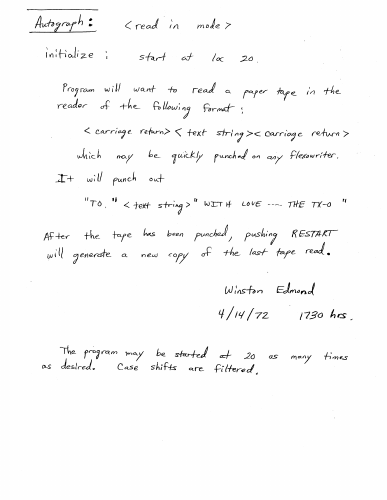 Autograph: <read in mode>
initialize: start at loc 20.
Program will want to read a paper tape in the
reader of the following format:
<carriage return><text string><carriage return>
which may be quickly punched on any flexowriter.
It will punch out
"TO. "<text string>" WITH LOVE ---- THE TX-0 "
After the tape has been punched, pushing RESTART
will generate a new copy of the last tape read.
Winston Edmond
4/14/72 1730 hrs.
The program may be started at 20 as many times
as desired. Case shifts are filtered.